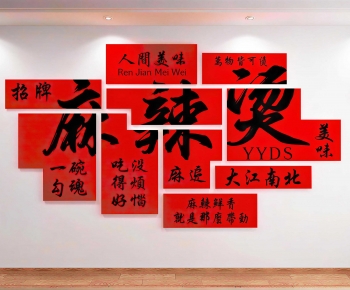 人間美味
Ren Jian Mei Wei
萬物皆可燙
招牌
麻辣燙
YYDS
美味
一碗
勾魂
吃没
得煩
好惱
麻逅
大江南北
麻辣鮮香
就是那麼帶勁